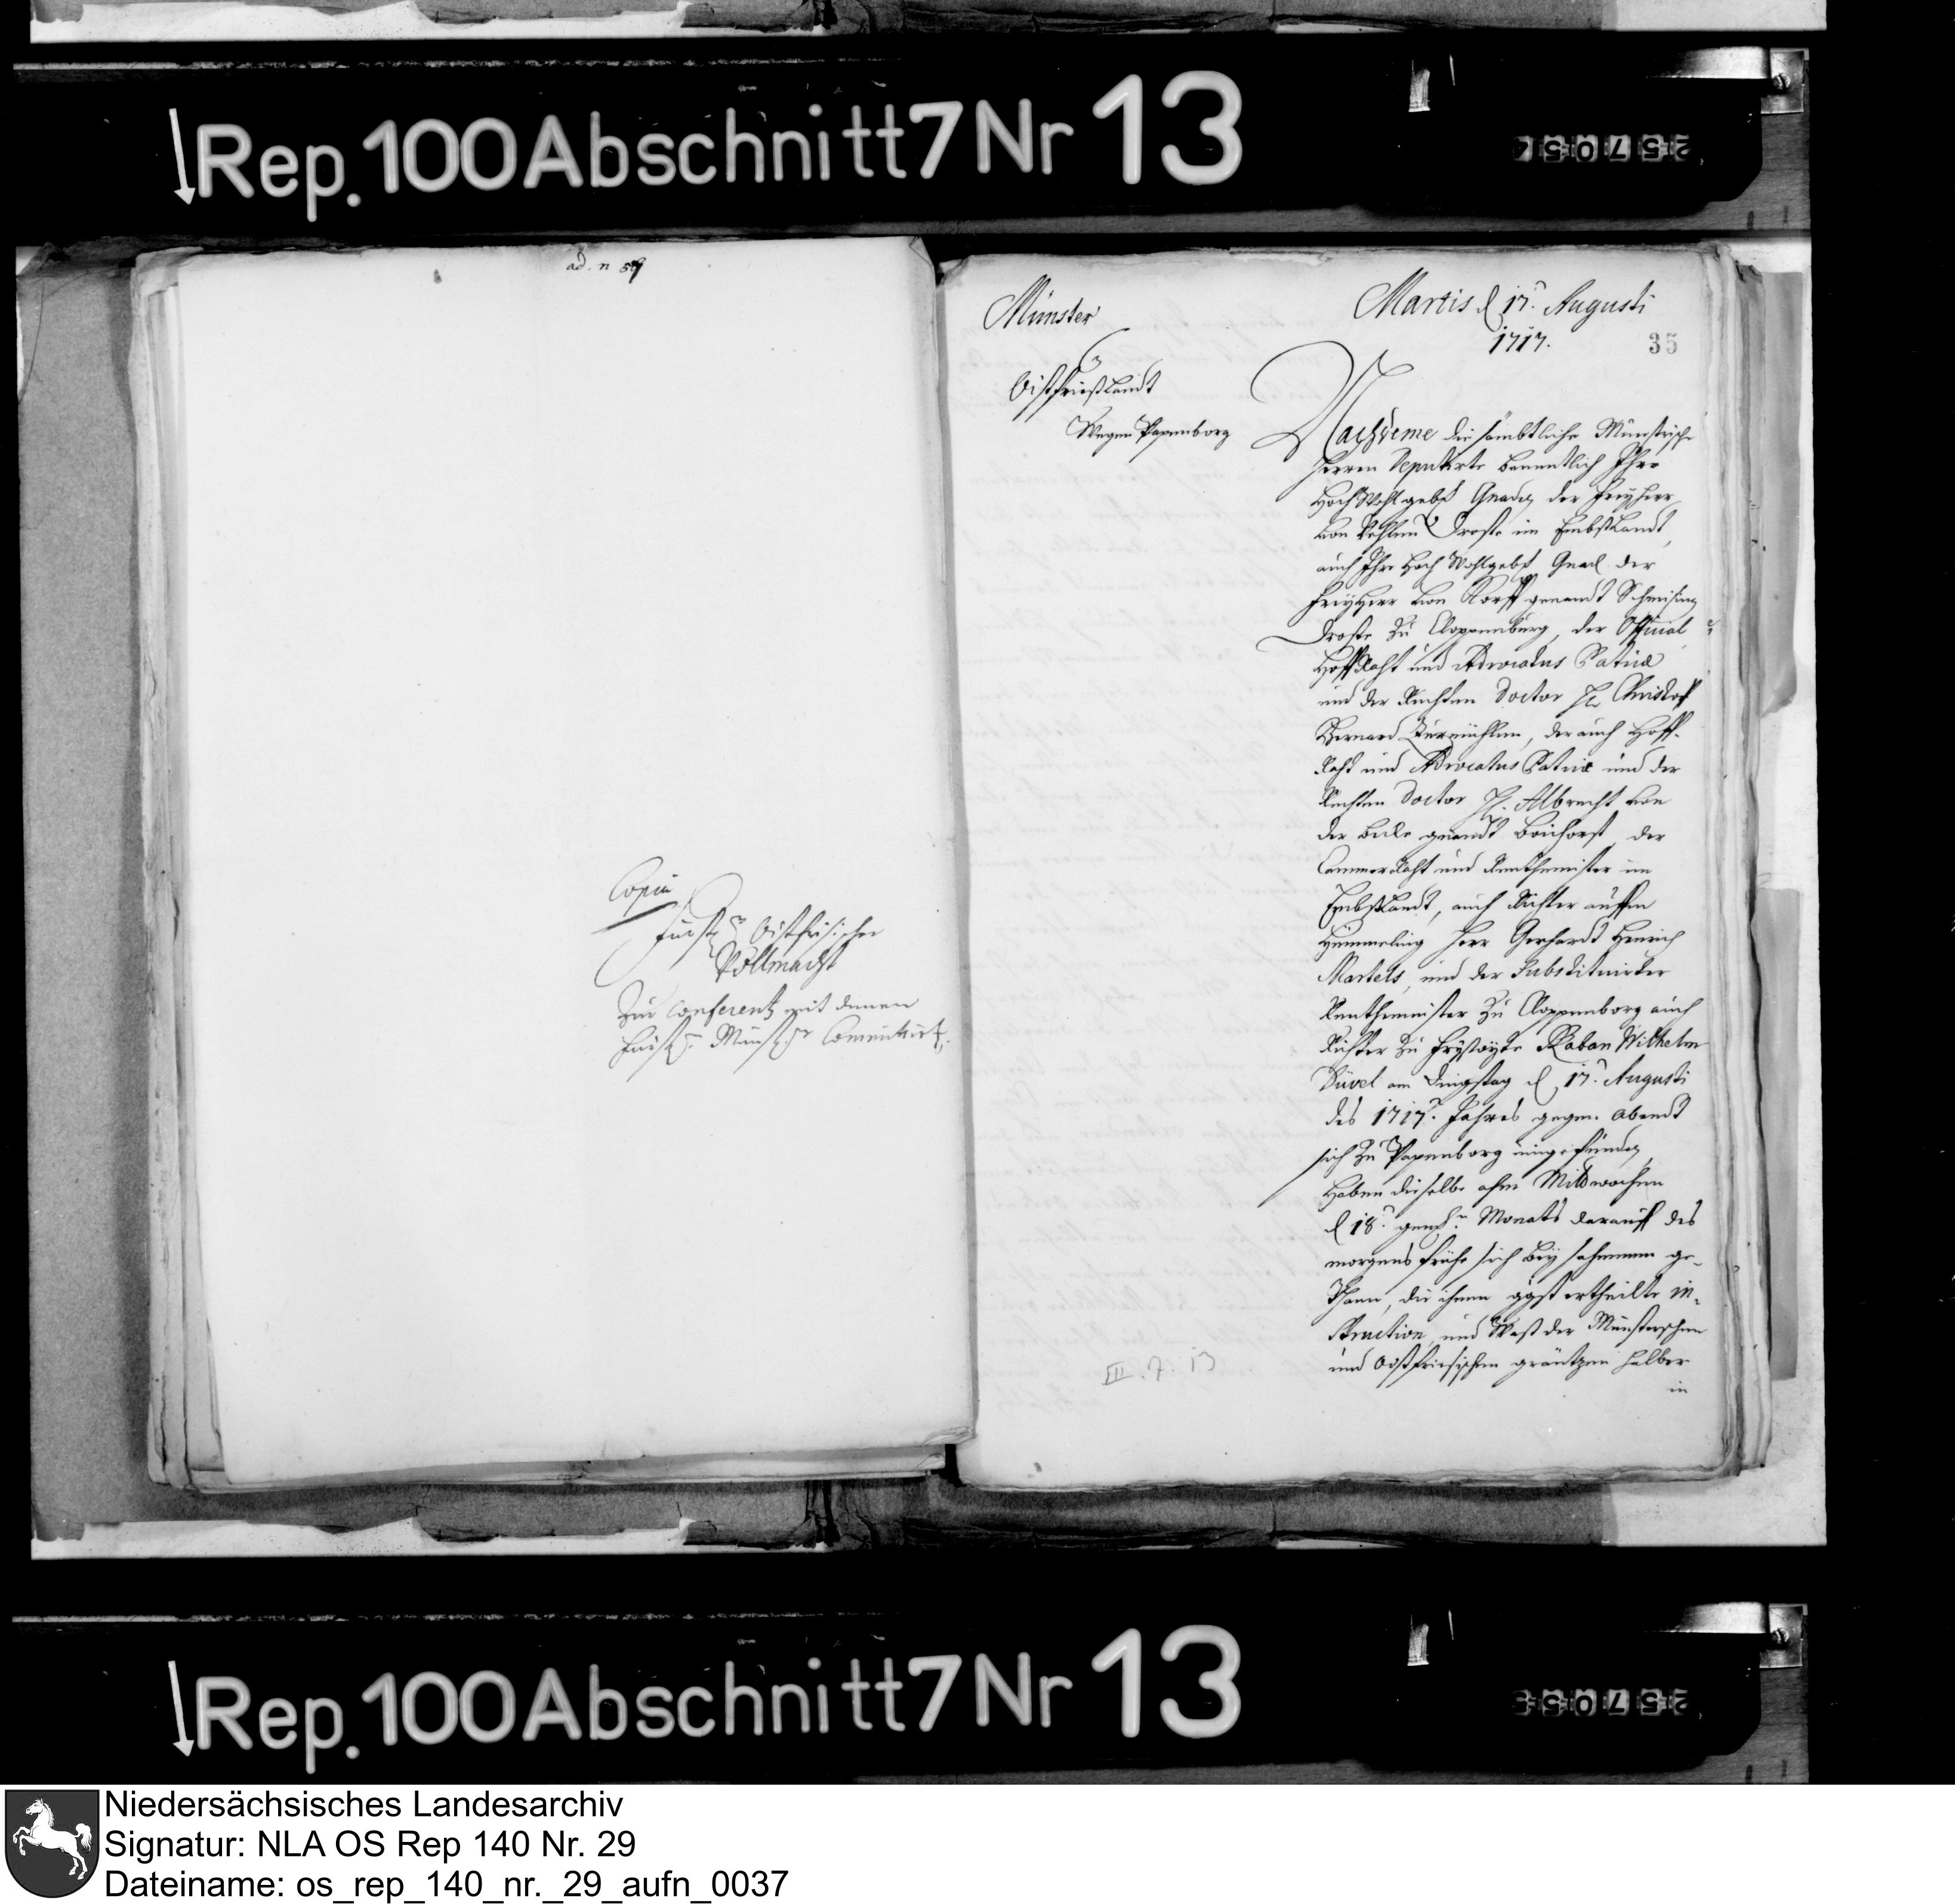 Rep. 100 Abschnitt 7 Nr 13
257054
ad. n 59
Copia
Fürstl. Ostfrisischer
Vollmacht
zur Conferentz mit denen
Fürstl. Münst.
Münster
Ostfrießlandt
Wegen Papenborg
Martis d 17. Augusti
1717.
35
Nachdeme die sämbtliche Münstrische
Herren Deputirte benentlich Ihro
HochWohlgebohr Gnaden der Freyherr
von Vehlen Droste im Embßlandt,
auch Ihro Hoch Wohlgeb Gnad der
Freyherr von Korff genandt Schmising
Droste zu Cloppenburg, der Official
HoffRaht und Advocatus Patriæ
und der Rechten Doctor Hr Christoff
Bernard Zurmühlen, der auch Hoff-
Raht und Advocatus Patriæ und der
Rechten Doctor H. Albrecht von
der Becke genandt Boichorst der
CammerRaht und Renthemeister im
Embßlandt, auch Richter auffm
Hümmeling Herr Gerhardt Henrich
Martels, und der Substituirter
Renthemeister zu Cloppenborg auch
Richter zu Frysoyte Raban Wilhelm
Düvel am Dingstag d 17. Augusti
des 1717. Jahres gegen Abendt
sich zu Papenborg eingefunden
Haben dieselbe ahm Mittwochen
d 18. Monats darauff des
morgens frühe sich bey sahmmen ge-
thaen, die ihnen ggst ertheilte in-
struction, und Waß der Münsterschen
und Ostfriesischen gräntzen halber
in
III. 7. 13
Rep. 100 Abschnitt 7 Nr 13
257055
Niedersächsisches Landesarchiv
Signatur: NLA OS Rep 140 Nr. 29
Dateiname: os_rep_140_nr._29_aufn_0037